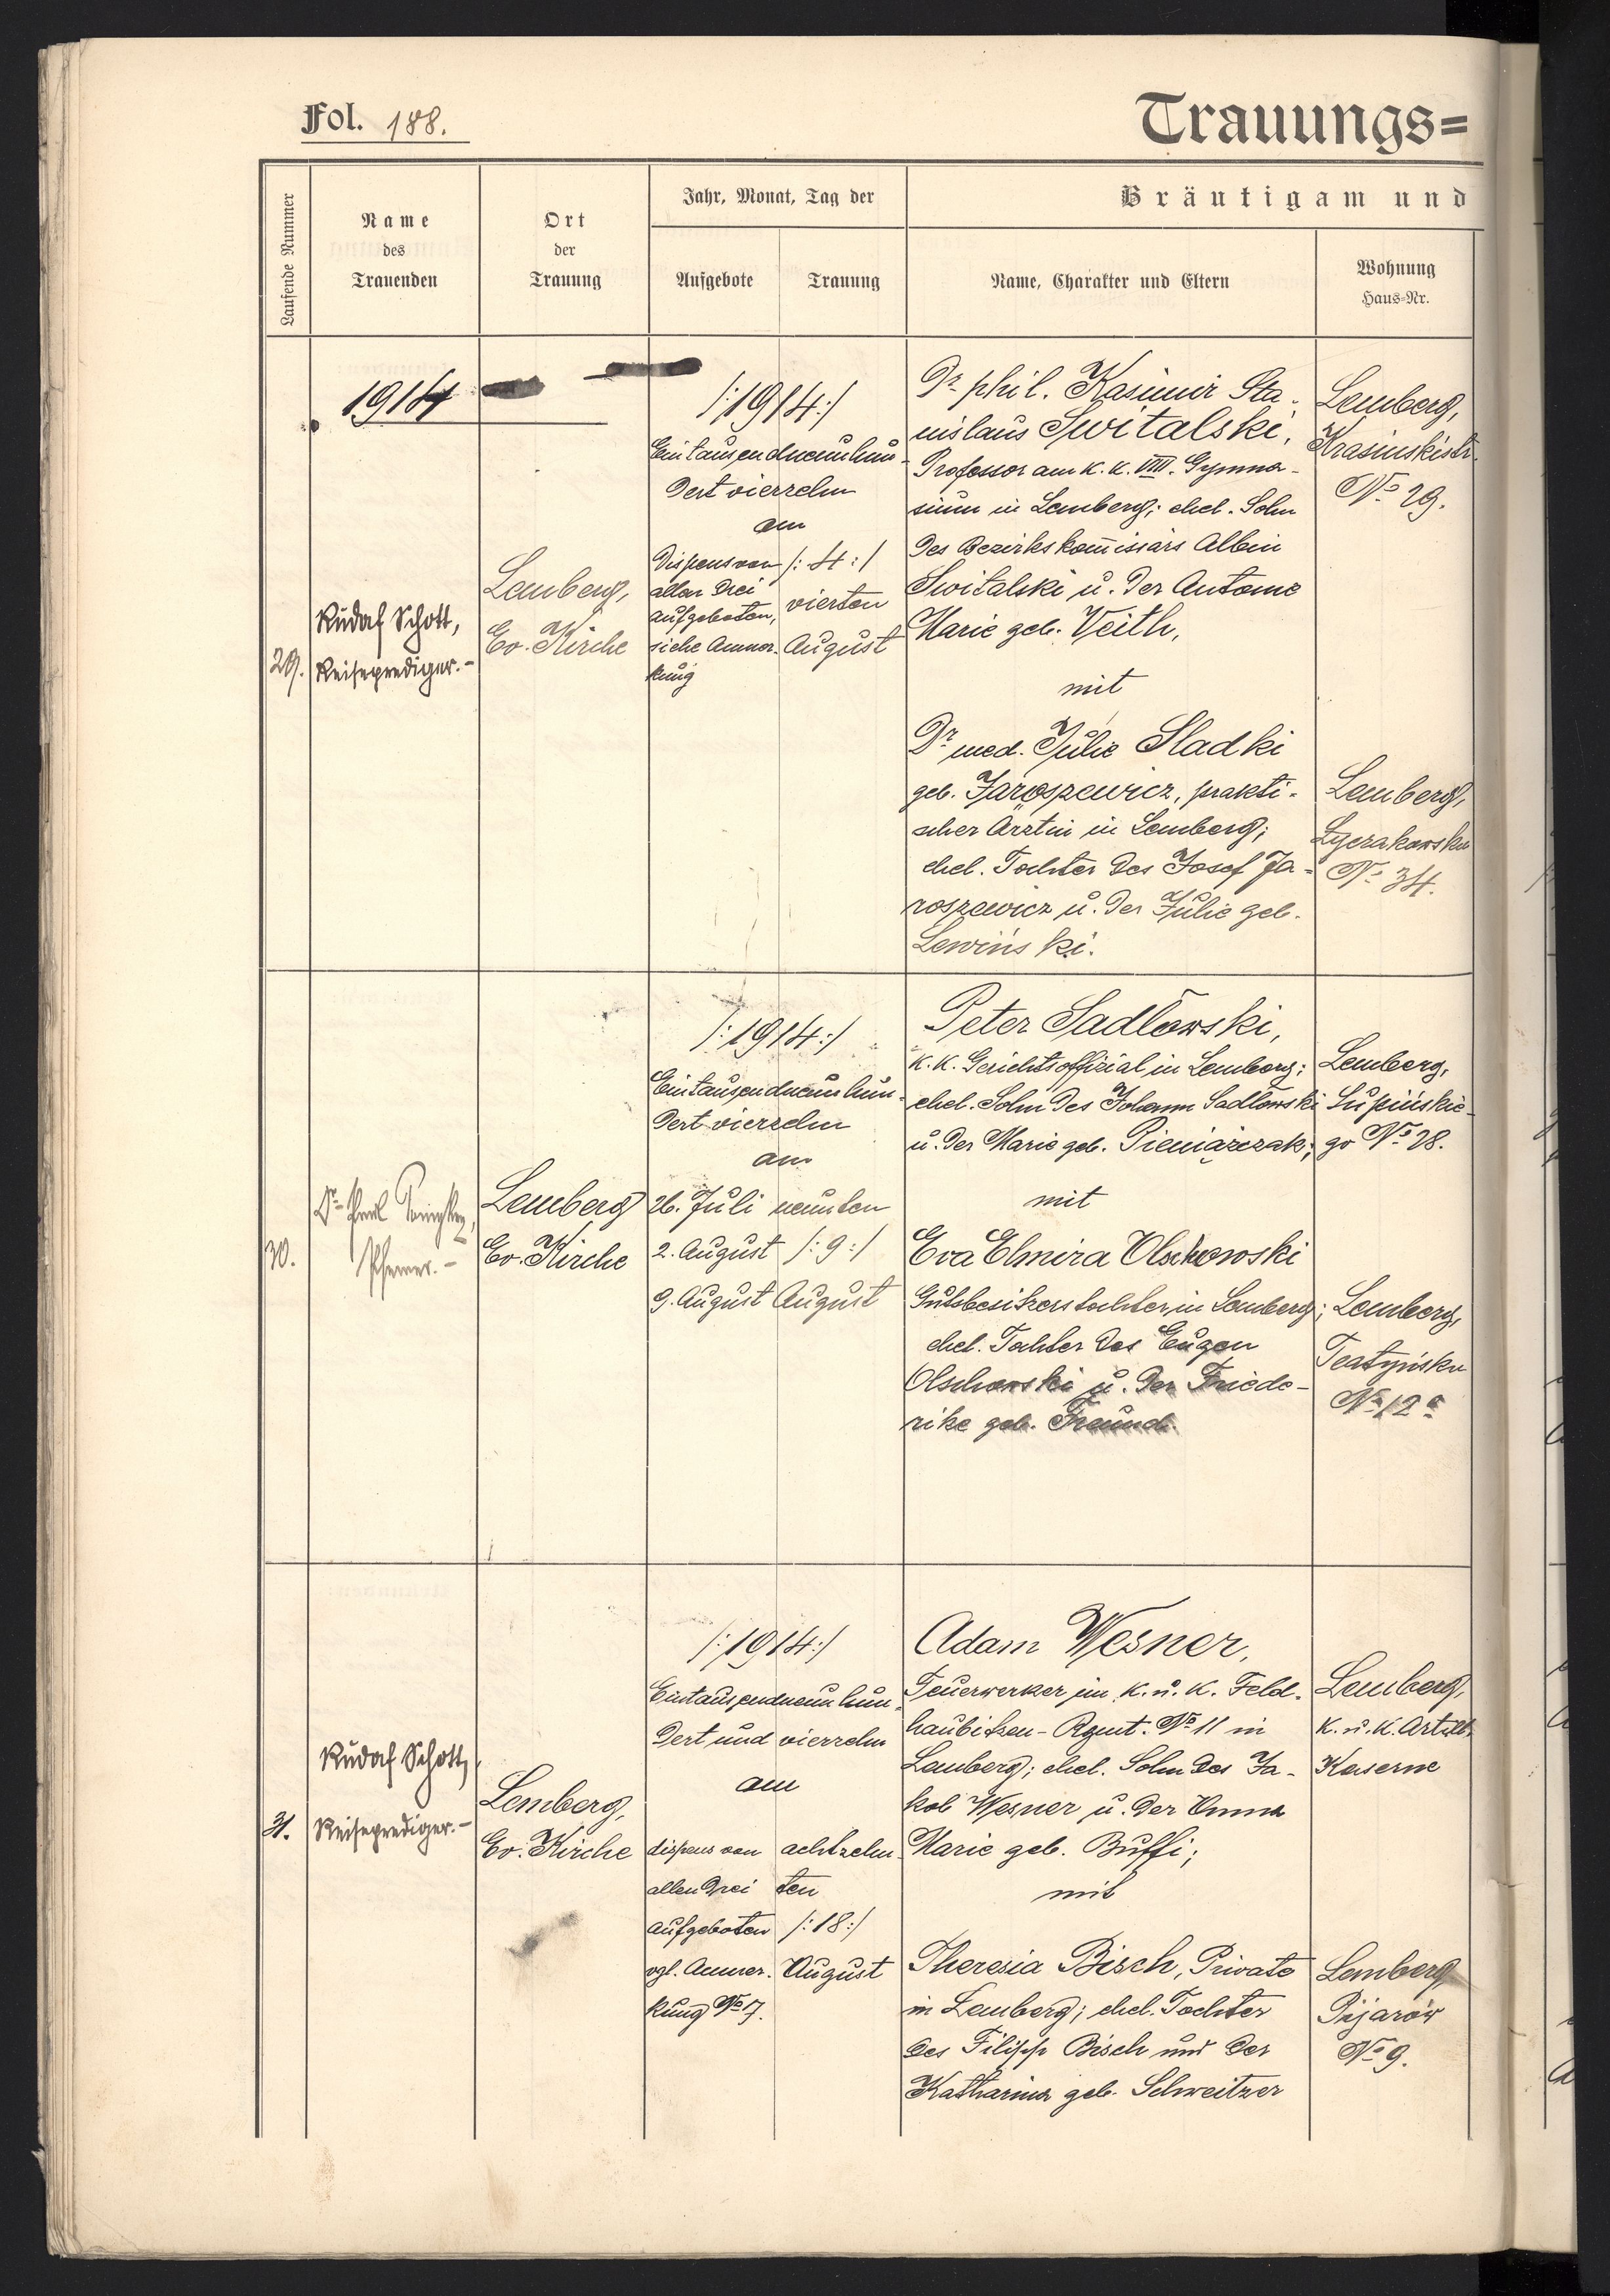 Fol. 188.
Trauungs=
Laufende Nummer
Name
des
Trauenden
Ort
der
Trauung
Jahr, Monat, Tag der
Aufgebote
Trauung
Bräutigam und
Name, Charakter und Eltern
Wohnung
Haus=Nr.
1914
29.
Rudolf Schott,
Reiseprediger.-
Lemberg,
Ev. Kirche
/:1914:/
Eintausendneunhun-
dert vierzehn
am
Dispens von
allen drei
Aufgeboten,
siehe Anmer-
kung
/:4:/
vierten
August
Dr. phil. Kasimir Sta-
nislaus Switalski,
Professor am k. k. VIII. Gymna-
sium in Lemberg; ehel. Sohn
des Bezirkskommissärs Albin
Switalski u. der Antonie
Marie geb. Veith,
mit
Dr. med. Julie Sladki
geb. Jaroszewicz, prakti-
scher Ärztin in Lemberg;
ehel. Tochter des Josef Ja-
roszewicz u. der Julie geb.
Lewiński.
Lemberg,
Krasinskistr.
No 29.
Lemberg,
Łyczakowska
No 34.
30.
Dr.
Pfarrer.-
Lemberg
Ev. Kirche
/:1914:/
Eintausendneunhun-
dert vierzehn
am
26. Juli
2. August
9. August
neunten
/:9:/
August
Peter Sadłowski,
k. k. Gerichtsoffizial in Lemberg;
ehel. Sohn des Johann Sadłowski
u. der Marie geb. Pieniążczak;
mit
Eva Elmira Olschowski
Gutsbesitzerstochter in Lemberg;
ehel. Tochter des Eugen
Olschowski u. der Friede-
rike geb. Freund.
Lemberg,
Łupińskie-
go No 28.
Lemberg,
Teatyńska
No 12a
31.
Rudolf Schott,
Reiseprediger.-
Lemberg,
Ev. Kirche
/:1914:/
Eintausendneunhun-
dert und vierzehn
am
dispens von
allen drei
Aufgeboten
vgl. Anmer-
kung No 17.
achtzehn-
ten
/:18:/
August
Adam Wesner,
Feuerwerker im k. u. k. Feld-
haubitzen-Rgmt. No 11 in
Lemberg; ehel. Sohn des Ja-
kob Wesner u. der Anna
Marie geb. Buffi;
mit
Theresia Bisch, Private
in Lemberg; ehel. Tochter
des Filipp Bisch und der
Katharina geb. Schweitzer
Lemberg,
k. u. k. Artill.
Kaserne
Lemberg
Pijarów
No 9.